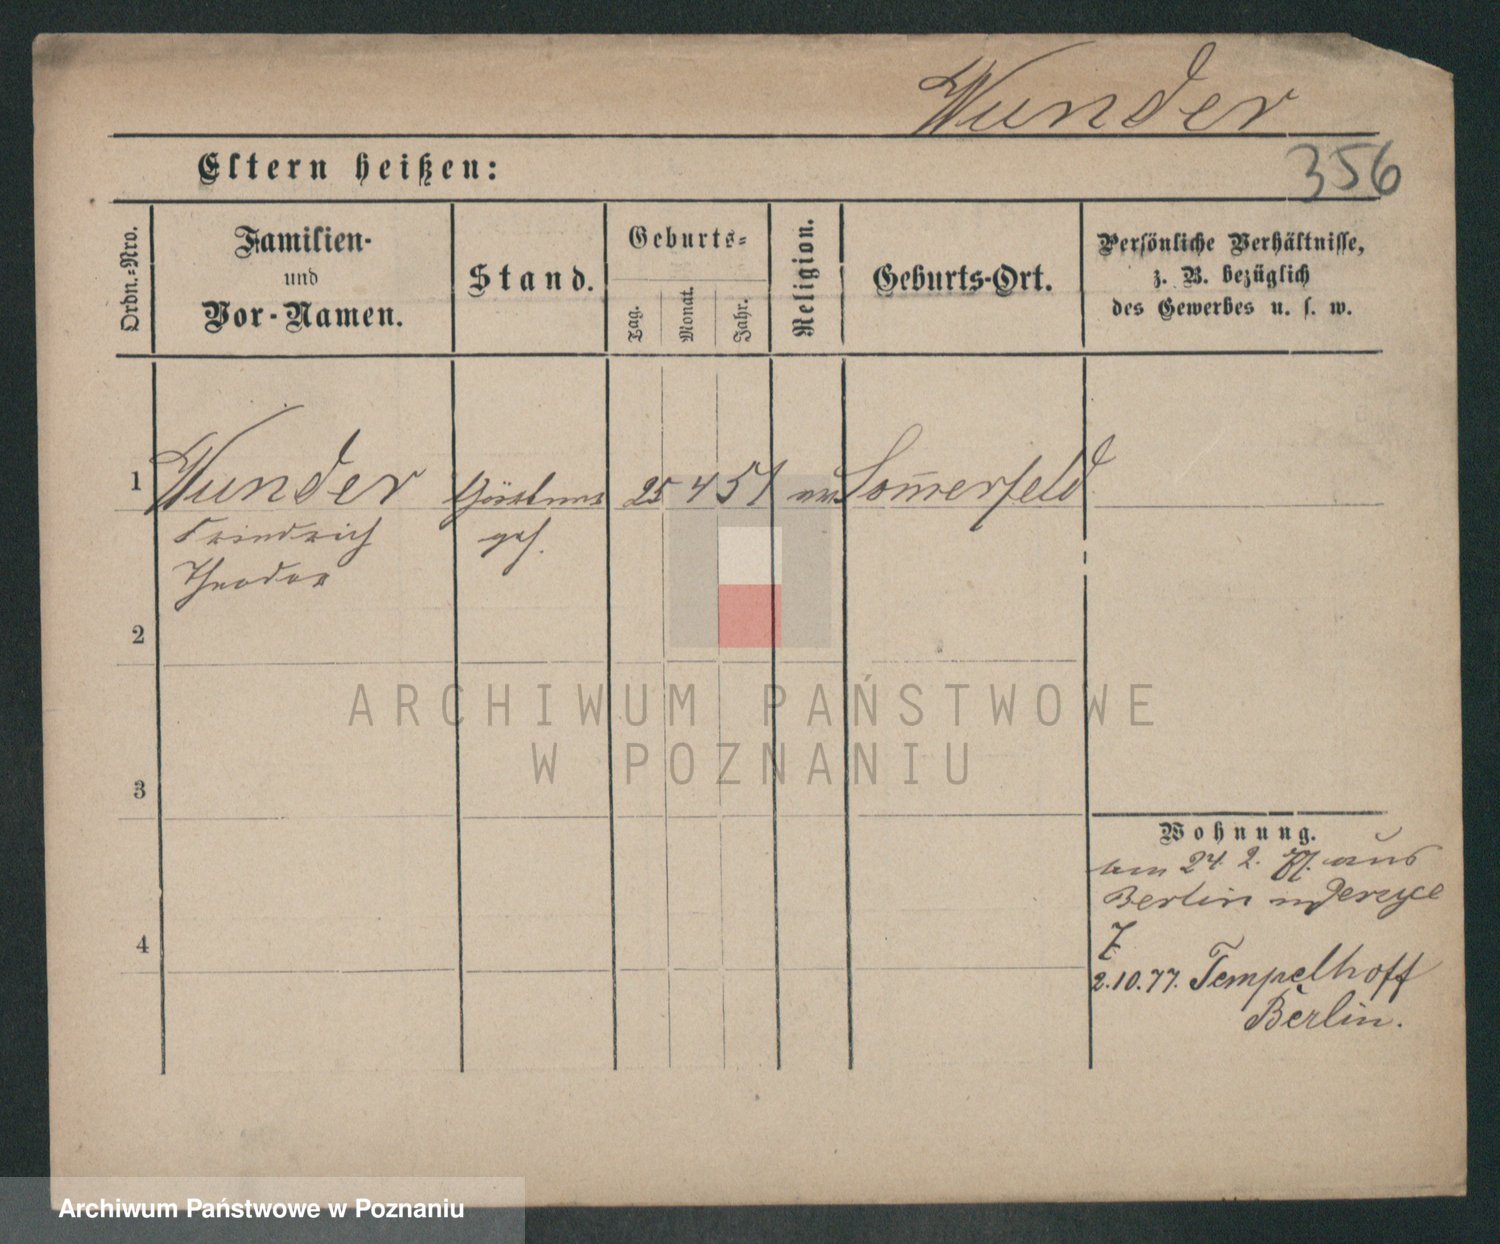 Wunder
356
Eltern heißen:
Ordn.-Nro.
Familien-
und
Vor-Namen.
Stand.
Geburts-
Tag.
Monat.
Jahr.
Religion.
Geburts-Ort.
Persönliche Verhältnisse,
z. B. bezüglich
des Gewerbes u. s. w.
1
Wunder
25
4
51
Som̅erfeld
Friedrich
Theodor
2
3
4
Wohnung.
24. 2. 77. aus
Berlin
2.10.77. Tempelhoff
Berlin.
ARCHIWUM PAŃSTWOWE
W POZNANIU
Archiwum Państwowe w Poznaniu